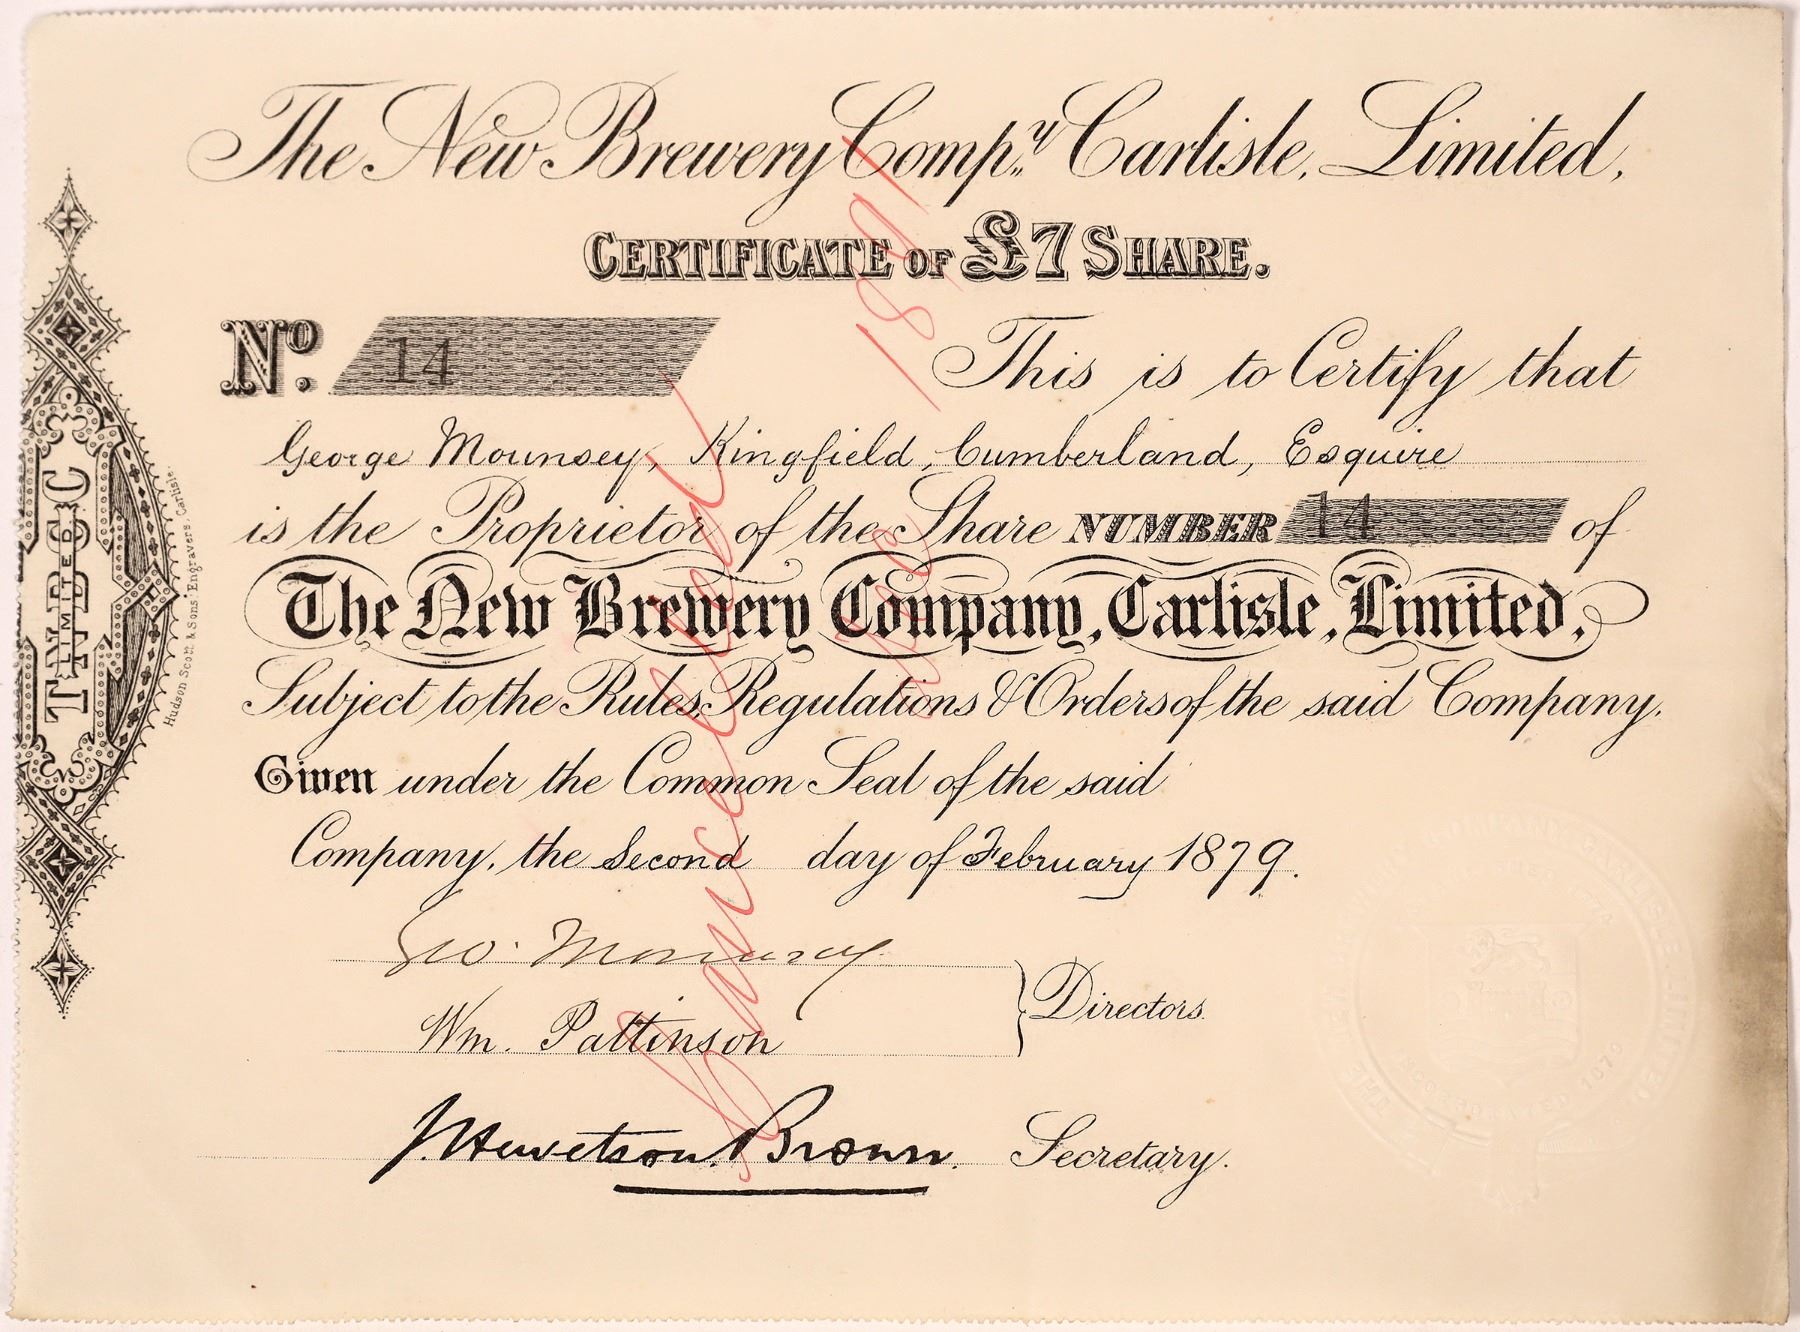 The New Brewery Compy. Carlisle, Limited,
CERTIFICATE OF £7 SHARE.
No. 14
This is to Certify that
George Mounsey, Kingfield, Cumberland, Esquire
is the Proprietor of the Share NUMBER 14 of
The New Brewery Company, Carlisle, Limited,
Subject to the Rules, Regulations & Orders of the said Company.
Given under the Common Seal of the said
Company, the Second day of February 1879.
Geo. Mounsey
Wm. Pattinson
Directors.
J. Hewetson Brown. Secretary.
Cancelled
1891
TNBC
LIMITED
Hudson Scott & Sons, Engravers, Carlisle.
THE NEW BREWERY COMPANY, CARLISLE, LIMITED
INCORPORATED 1879